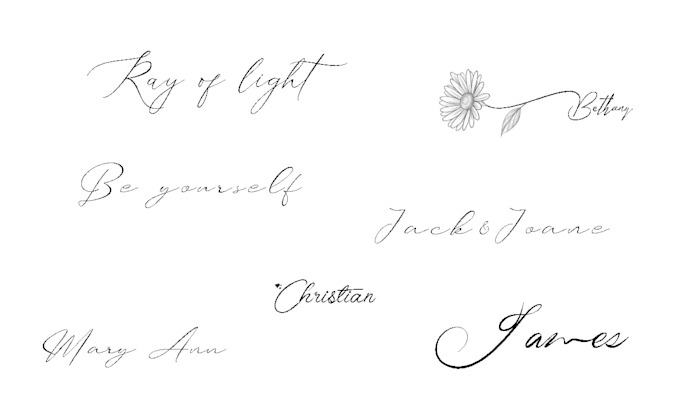 Ray of light
Bethany
Be yourself
Jack & Joane
Christian
Mary Ann
James